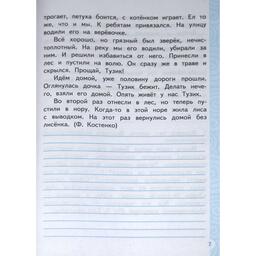 трогает, петуха боится, с котёнком играет. Ел то
же, что и мы. К ребятам привязался. На улицу
водили его на верёвочке.
Всё хорошо, но грязный был зверёк, нечис-
топлотный. На реку мы его водили, убирали за
ним. И решили избавиться от него. Принесли в
лес и пустили на волю. Он сразу же в траве и
скрылся. Прощай, Тузик!
Идём домой, уже половину дороги прошли.
Оглянулась дочка — Тузик бежит. Делать нече-
го, взяли его домой. Опять живёт у нас Тузик.
Во второй раз отнесли в лес, но теперь пу-
стили в нору. Когда-то в этой норе жила лиса
с выводком. На этот раз вернулись домой без
лисёнка. (Ф. Костенко)
7